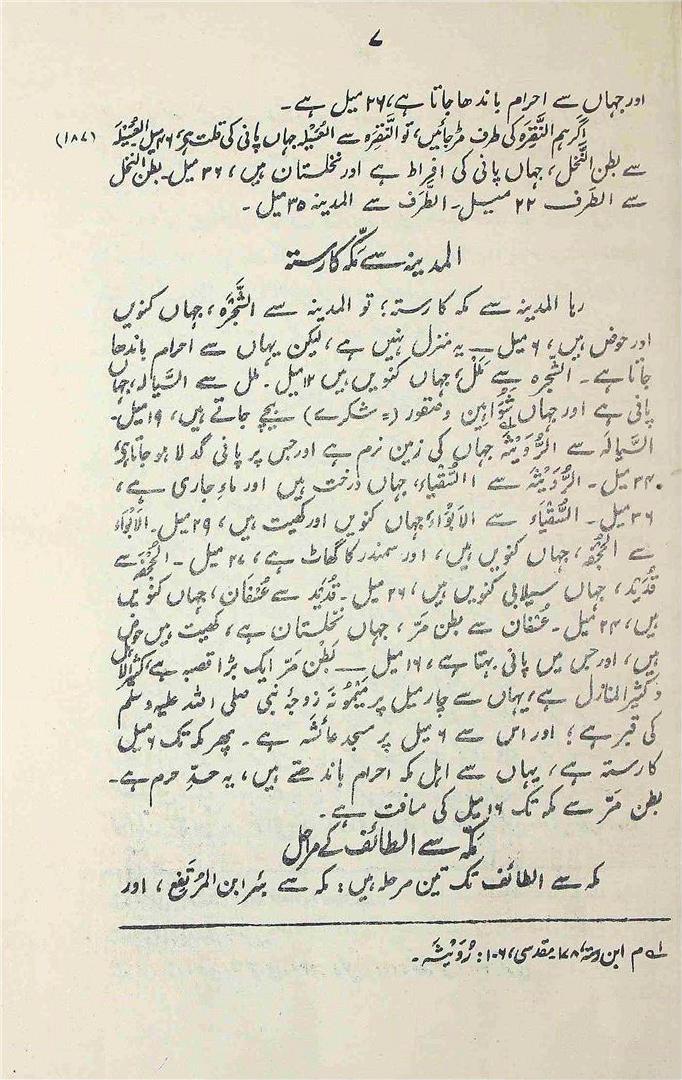 ۷
اور جہاں سے احرام باندھا جاتا ہے، ۲۶ میل ہے۔
اگر ہم النَّقِرَہ کی طرف مڑ جائیں، تو النَّقِرَہ سے العُسَیلہ جہاں پانی کی قلت ہے، ۴۶ میل العُسَیْلَہ (۱۸۷)
سے بطن النَّخل، جہاں پانی کی افراط ہے اور نخلستان ہیں، ۳۶ میل۔ بطن النخل
سے الطرف ۲۲ میل۔ الطَّرَف سے المدینہ ۳۵ میل۔
المدینہ سے مکّہ کا رستہ
رہا المدینہ سے مکہ کا رستہ؛ تو المدینہ سے الشَّجَرَہ، جہاں کنویں
اور حوض ہیں، ۶ میل — یہ منزل نہیں ہے، لیکن یہاں سے احرام باندھا
جاتا ہے۔ الشجرہ سے مَلَل، جہاں کنویں ہیں ۱۲ میل۔ ملل سے السَّیالہ، جہاں
پانی ہے اور جہاں شَوَاہین وصقور (= شکرے) بیچے جاتے ہیں، ۱۹ میل۔
السَّیالَہ سے الرُّوَیْثَہ جہاں کی زمین نرم ہے اور جس پر پانی گدلا ہو جاتا ہے،
۳۴ میل۔ الرُّوَیْثَہ سے السُّقْیاء، جہاں درخت ہیں اور ماءِ جاری ہے،
۳۶ میل۔ السُّقْیَاء سے الاَبْوَاء، جہاں کنویں اور کھیت ہیں، ۲۹ میل۔ الاَبْوَاء
سے الجُحْفَہ، جہاں کنویں ہیں، اور سمندر کا گھاٹ ہے، ۲۷ میل۔ الجُحْفَہ سے
قُدَیْد، جہاں سیلابی کنویں ہیں، ۲۶ میل۔ قُدَیْد سے عُسْفَان، جہاں کنویں
ہیں، ۲۴ میل۔ عُسْفَان سے بطن مَرّ، جہاں نخلستان ہے، کھیت ہیں حوض
ہیں، اور جس میں پانی بہتا ہے، ۱۶ میل — بَطْن مَرّ ایک بڑا قصبہ ہے، کثیر الاہل
وکثیر المنازل ہے، یہاں سے چار میل پر میْمُونَہ زوجۂ نبی صلی اللہ علیہ وسلم
کی قبر ہے؛ اور اس سے ۶ میل پر مسجد عائشہ ہے۔ پھر مکہ تک ۶ میل
کا رستہ ہے، یہاں سے اہل مکہ احرام باندھتے ہیں، یہ حدِّ حرم ہے۔
بطن مَرّ سے مکہ تک ۱۶ میل کی مسافت ہے۔
مکّہ سے الطائف کے مراحل
مکہ سے الطائف تک تین مرحلہ ہیں: مکہ سے بئر ابن المُرتَفِع، اور
لے م ابن رستہ، ۱۷۸ مقدسی، ۱۰۶: رُوَیْثَہ۔